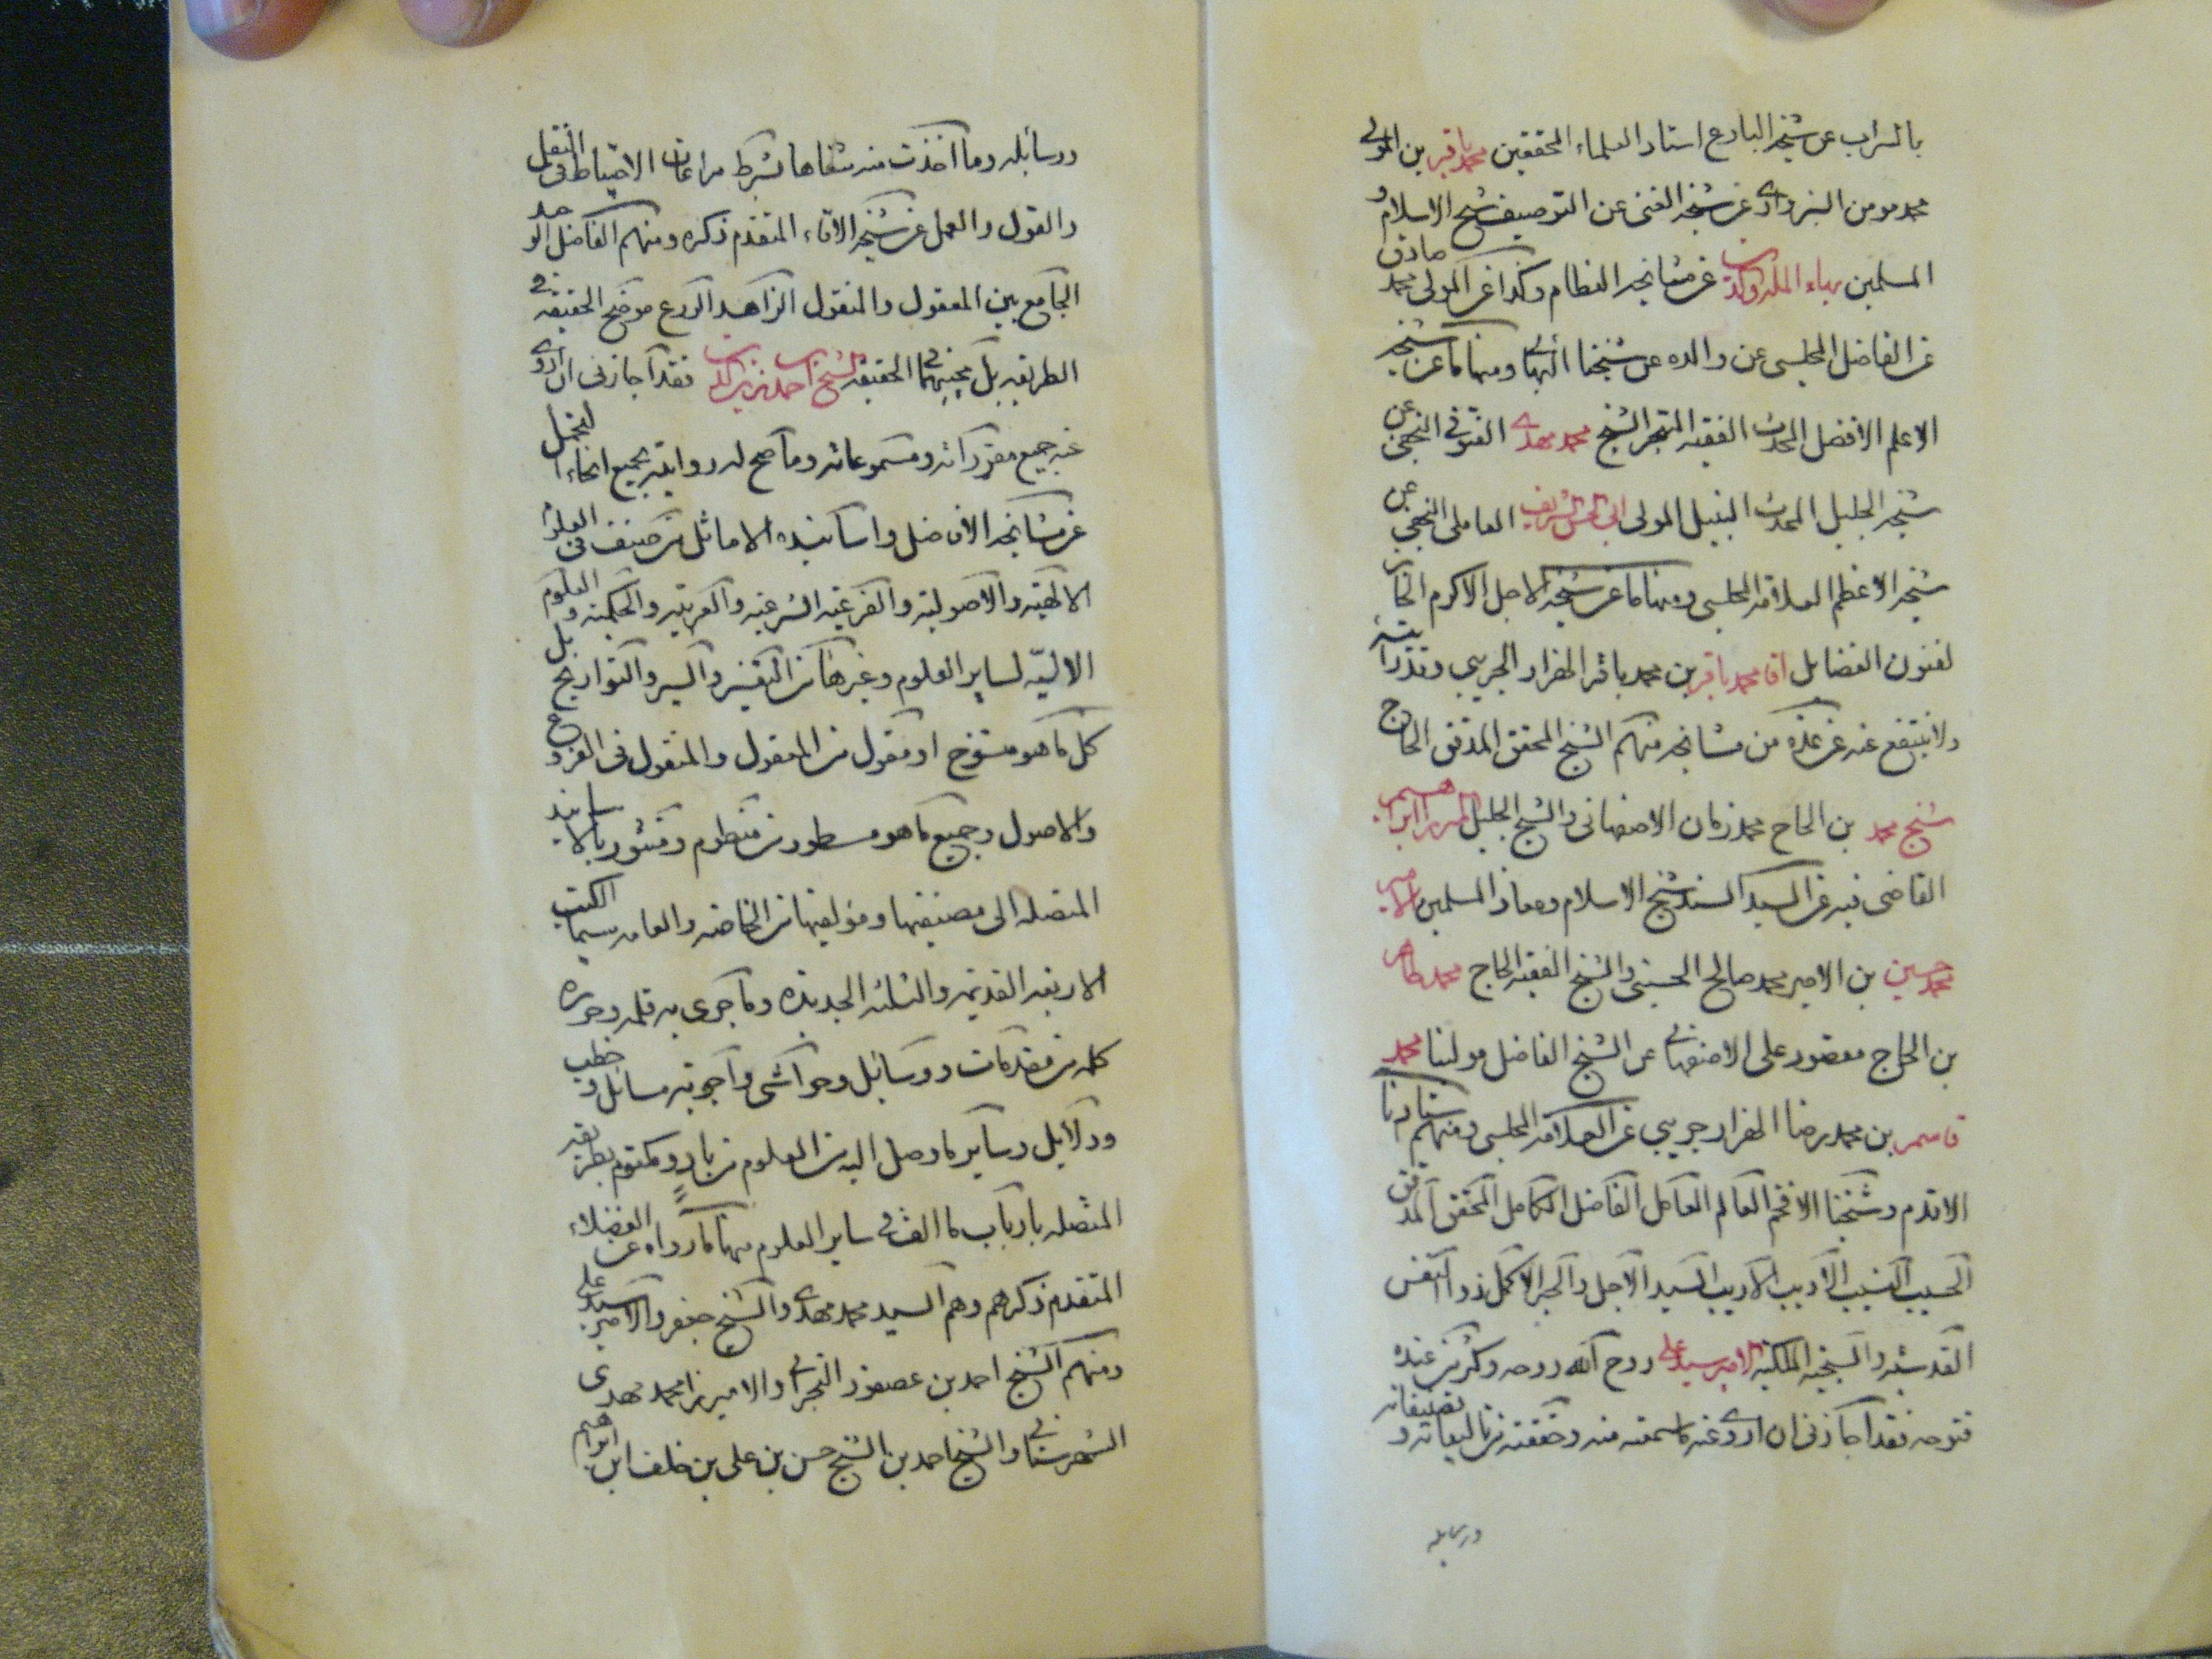 بالسراب عن شيخه البارع استاد العلماء المحققين محمد باقر بن المولى
محمد مومن السبزوارى عن شيخه الغنى عن التوصيف شيخ الاسلام و
المسلمين بهاء الملة والدين عن مشايخه العظام وكذا عن المولى محمد صادق
عن الفاضل المجلسى عن والده عن شيخنا البهائى ومنها ما عن شيخه
الاعلم الافضل المحدث الفقيه المتبحر الشيخ محمد مهدى الفتونى النجفى عن
شيخه الجليل المحدث النبيل المولى ابى الحسن الشريف العاملى النجفى عن
شيخه الاعظم العلامة المجلسى ومنها ما عن شيخه الاجل الاكرم الحائز
لفنون الفضايل اقا محمد باقر بن محمد باقر الهزار الجريبى
عنه عن عدة من مشايخه منهم الشيخ المحقق المدقق الحاج
شيخ محمد بن الحاج محمد زمان الاصفهانى والشيخ الجليل الميرزا ابراهيم
القاضى فيه عن السيد السند شيخ الاسلام وملاذ المسلمين الامير
محمد حسين بن الامير محمد صالح الحسينى والشيخ الفقيه الحاج محمد طاهر
بن الحاج مقصود على الاصفهانى عن الشيخ الفاضل مولينا محمد
قاسم بن محمد رضا الهزار جريبى عن العلامة المجلسى ومنهم استادنا
الاقدم وشيخنا الافخم العالم العامل الفاضل الكامل المحقق المدقق
الحسيب النسيب الاديب الاريب السيد الاجل والحبر الاكمل ذو النفس
القدسيه والسجيه الملكيه الامير سيد على روح الله روحه وكثر من عنده
فتوحه فقد اجازنى ان اروى عنه ما سمعته منه وحققته من تاليفاته و تصنيفاته
ورسايله
ورسائله وما اخذت منه شفاها بشرط مراعات الاحتياط فى النقل
والقول والعمل عن شيخه الاقاء المتقدم ذكره ومنهم الفاضل الوحيد
الجامع بين المعقول والمنقول الزاهد الورع موضح الحقيقه و
الطريقه بل محييهما فى الحقيقه الشيخ احمد بن زين الدين فقد اجازنى ان اروى
عنه جميع مقرواته ومسموعاته وما صح له روايته بجميع انحاء التحمل
عن مشايخه الافاضل واساتيده الاماثل من صنف فى العلوم
الالهيه والاصوليه والفرعيه الشرعيه والعربيه والحكميه و العلوم
الاليّه لساير العلوم وغيرها من التفسير والسير والتواريخ بل
كل ما هو مشروح او مقول من المعقول والمنقول فى الفروع
والاصول وجميع ما هو مسطور من منظوم ومنثور بالاسانيد
المتصله الى مصنفيها ومؤلفيها من الخاصه والعامه سيما الكتب
الاربعه القديمه والثلثه الجديده وما جرى به قلمه وحرره
كله من مقدمات ورسائل وحواشى واجوبه مسائل و خطب
ودلايل وساير ما وصل اليه من العلوم من بارز ومكتوم بطريقه
المتصله بارباب ما الف فى ساير العلوم منها ما رواه عن الفضلاء
المتقدم ذكرهم وهم السيد محمد مهدى والشيخ جعفر والامير سيد على
ومنهم الشيخ احمد بن عصفور البحرانى والاميرزا محمد مهدى
الشهرستانى والشيخ احمد بن الشيخ حسن بن على بن خلف ابن ابراهيم